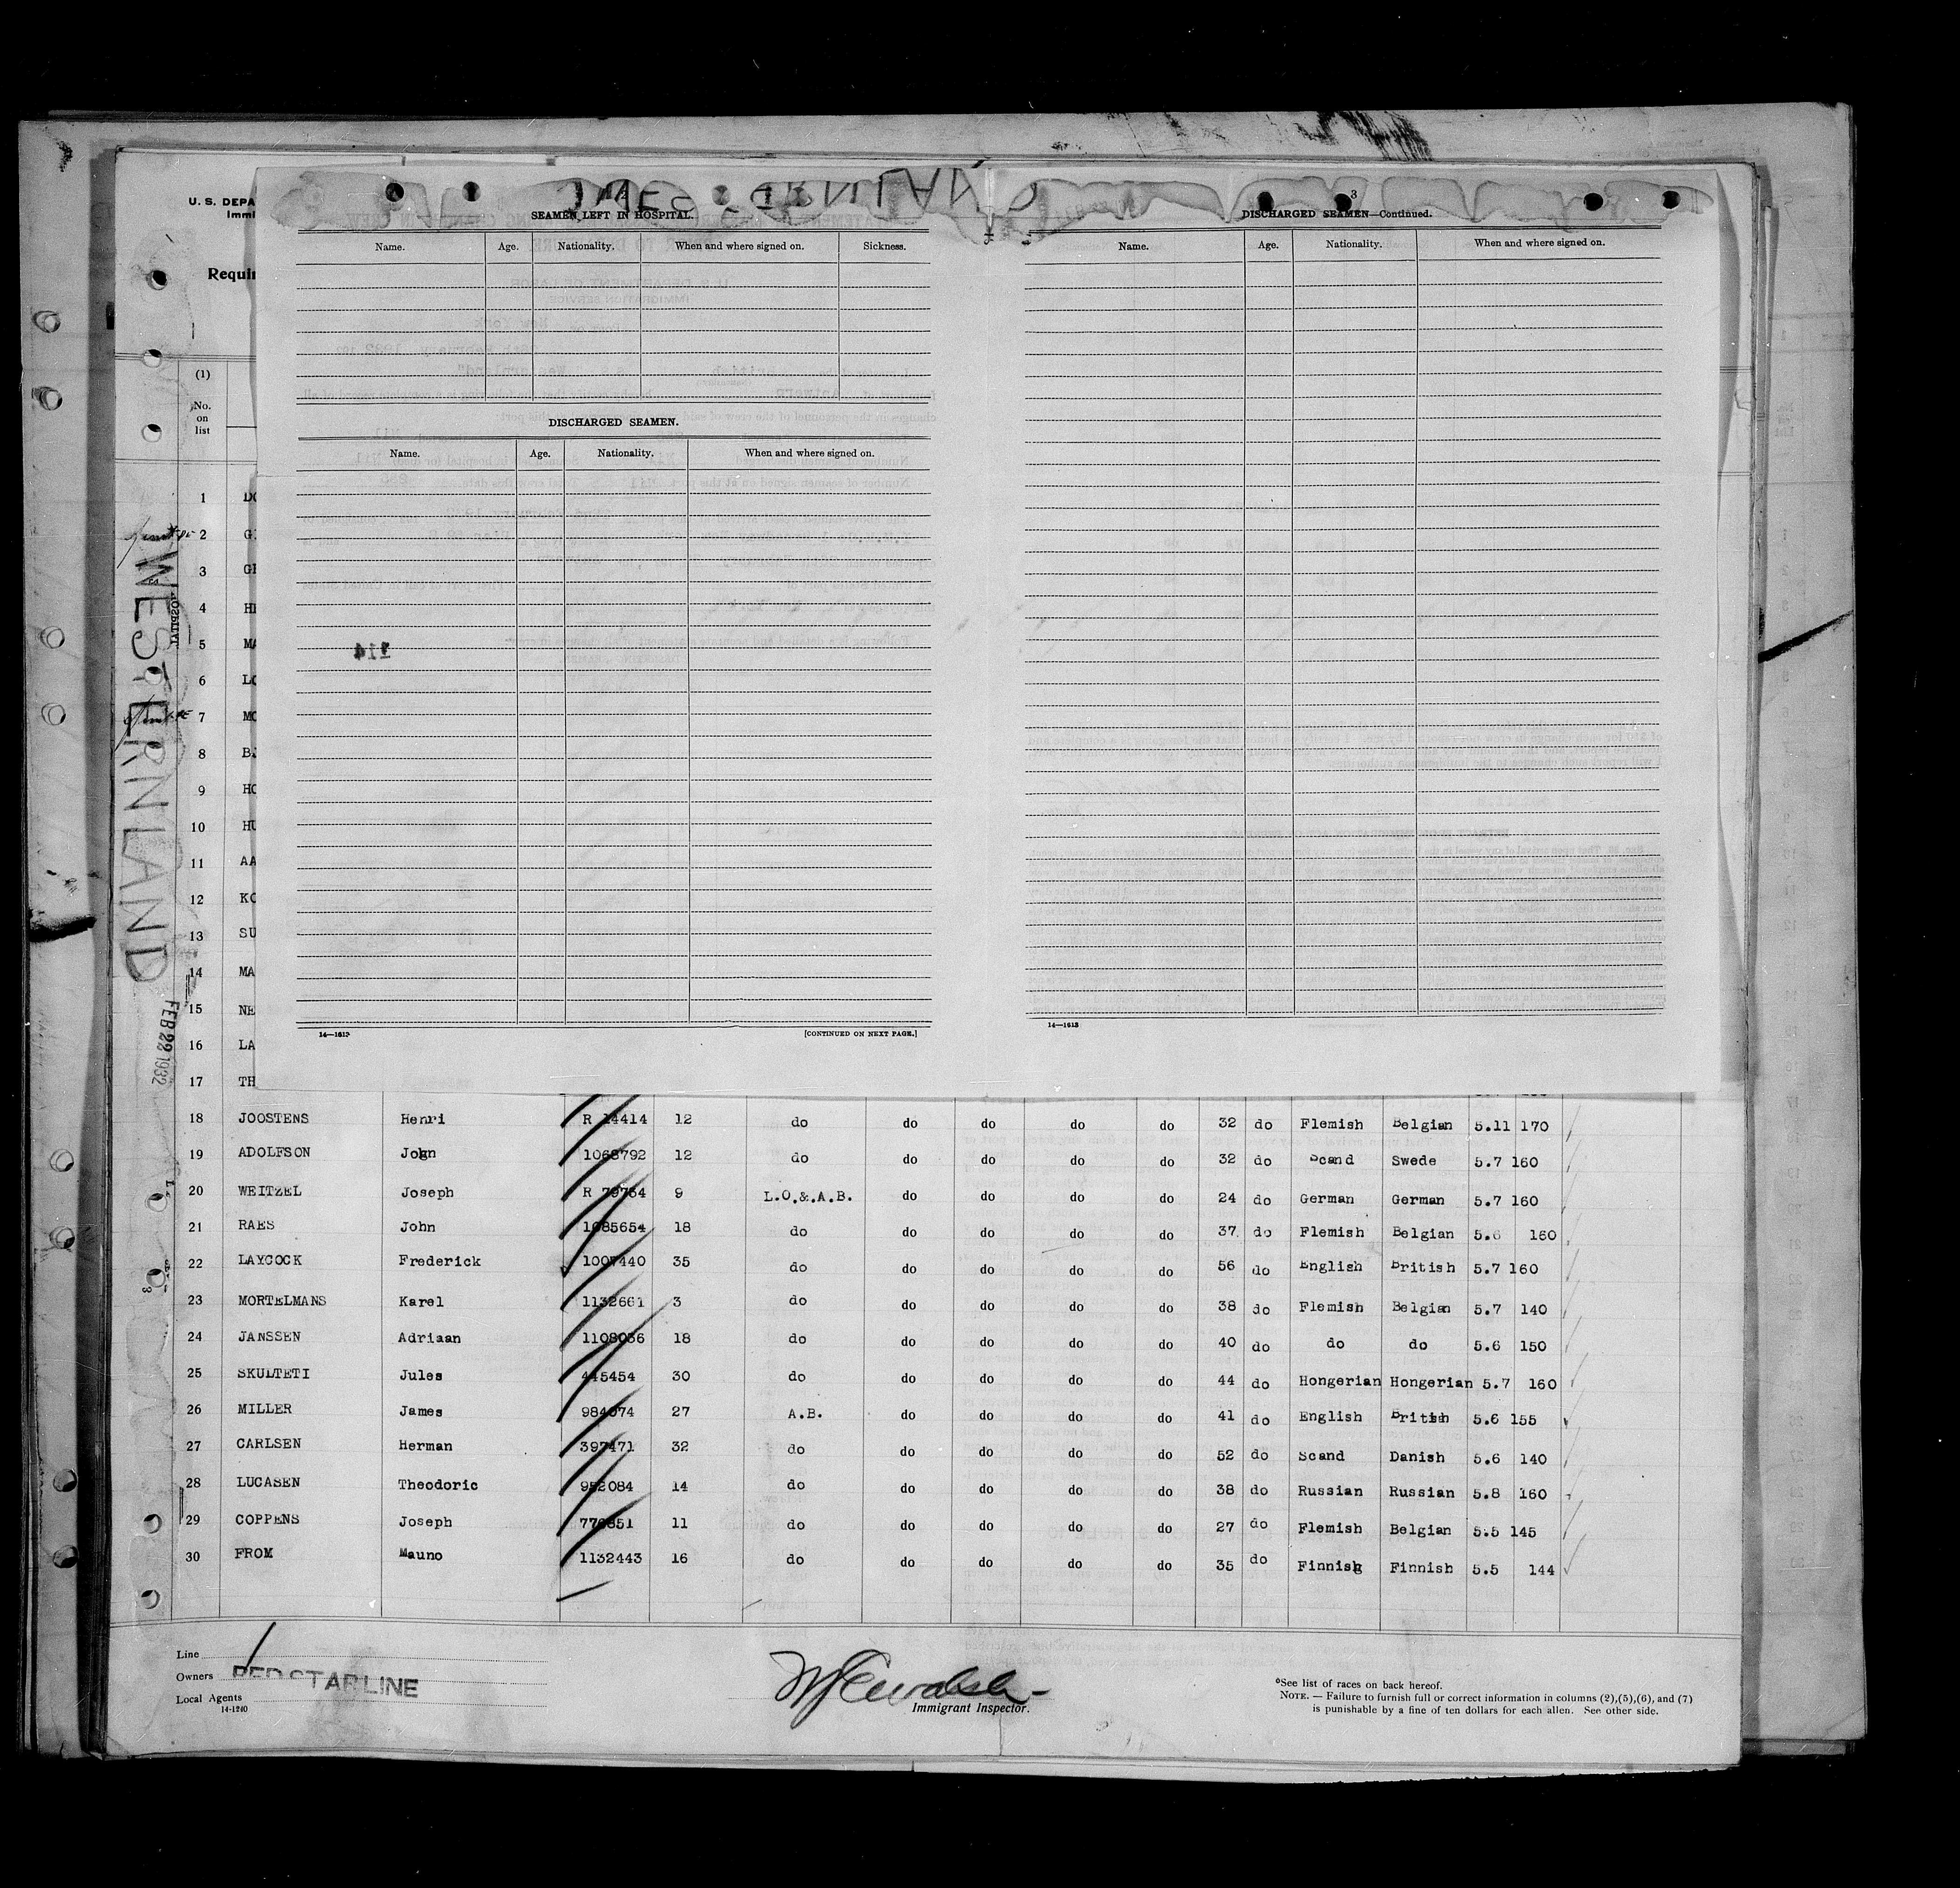 WESTERNLAND
U. S. DEPA
Immi
Requir
2
SEAMEN LEFT IN HOSPITAL.
Name. Age. Nationality. When and where signed on. Sickness.
DISCHARGED SEAMEN.
Name. Age. Nationality. When and where signed on.
14—1613
[CONTINUED ON NEXT PAGE.]
3
DISCHARGED SEAMEN—Continued.
Name. Age. Nationality. When and where signed on.
14—1613
(1)
No.
on
list
1 DO
2 G
3 GE
4 HE
5 MA
6 LO
7 MO
8 B
9 HO
10 HU
11 AA
12 KO
13 SU
14 MA
15 NE
16 LA
17 TH
WESTERNLAND
FEB 22 1932
18 JOOSTENS Henri R 14414 12 do do do do do 32 do Flemish Belgian 5.11 170
19 ADOLFSON John 1068792 12 do do do do do 32 do Scand Swede 5.7 160
20 WEITZEL Joseph R 79764 9 L.O.&.A.B. do do do do 24 do German German 5.7 160
21 RAES John 1085654 18 do do do do do 37 do Flemish Belgian 5.6 160
22 LAYCOCK Frederick 1007440 35 do do do do do 56 do English British 5.7 160
23 MORTELMANS Karel 1132661 3 do do do do do 38 do Flemish Belgian 5.7 140
24 JANSSEN Adriaan 1108036 18 do do do do do 40 do do do 5.6 150
25 SKULTETI Jules 445454 30 do do do do do 44 do Hongerian Hongerian 5.7 160
26 MILLER James 984074 27 A.B. do do do do 41 do English British 5.6 155
27 CARLSEN Herman 397471 32 do do do do do 52 do Scand Danish 5.6 140
28 LUCASEN Theodoric 952084 14 do do do do do 38 do Russian Russian 5.8 160
29 COPPENS Joseph 776851 11 do do do do do 27 do Flemish Belgian 5.5 145
30 FROM Mauno 1132443 16 do do do do do 35 do Finnish Finnish 5.5 144
Line
Owners RED STAR LINE
Local Agents
14-1240
Immigrant Inspector.
*See list of races on back hereof.
NOTE. — Failure to furnish full or correct information in columns (2),(5),(6), and (7)
is punishable by a fine of ten dollars for each alien. See other side.